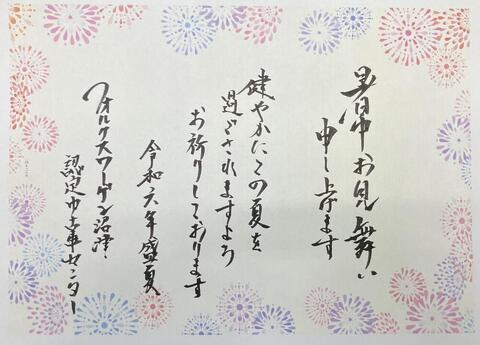 暑中お見舞い
申し上げます
健やかにこの夏を
過ごされますよう
お祈りしております
令和六年盛夏
フォルクスワーゲン沼津
認定中古車センター